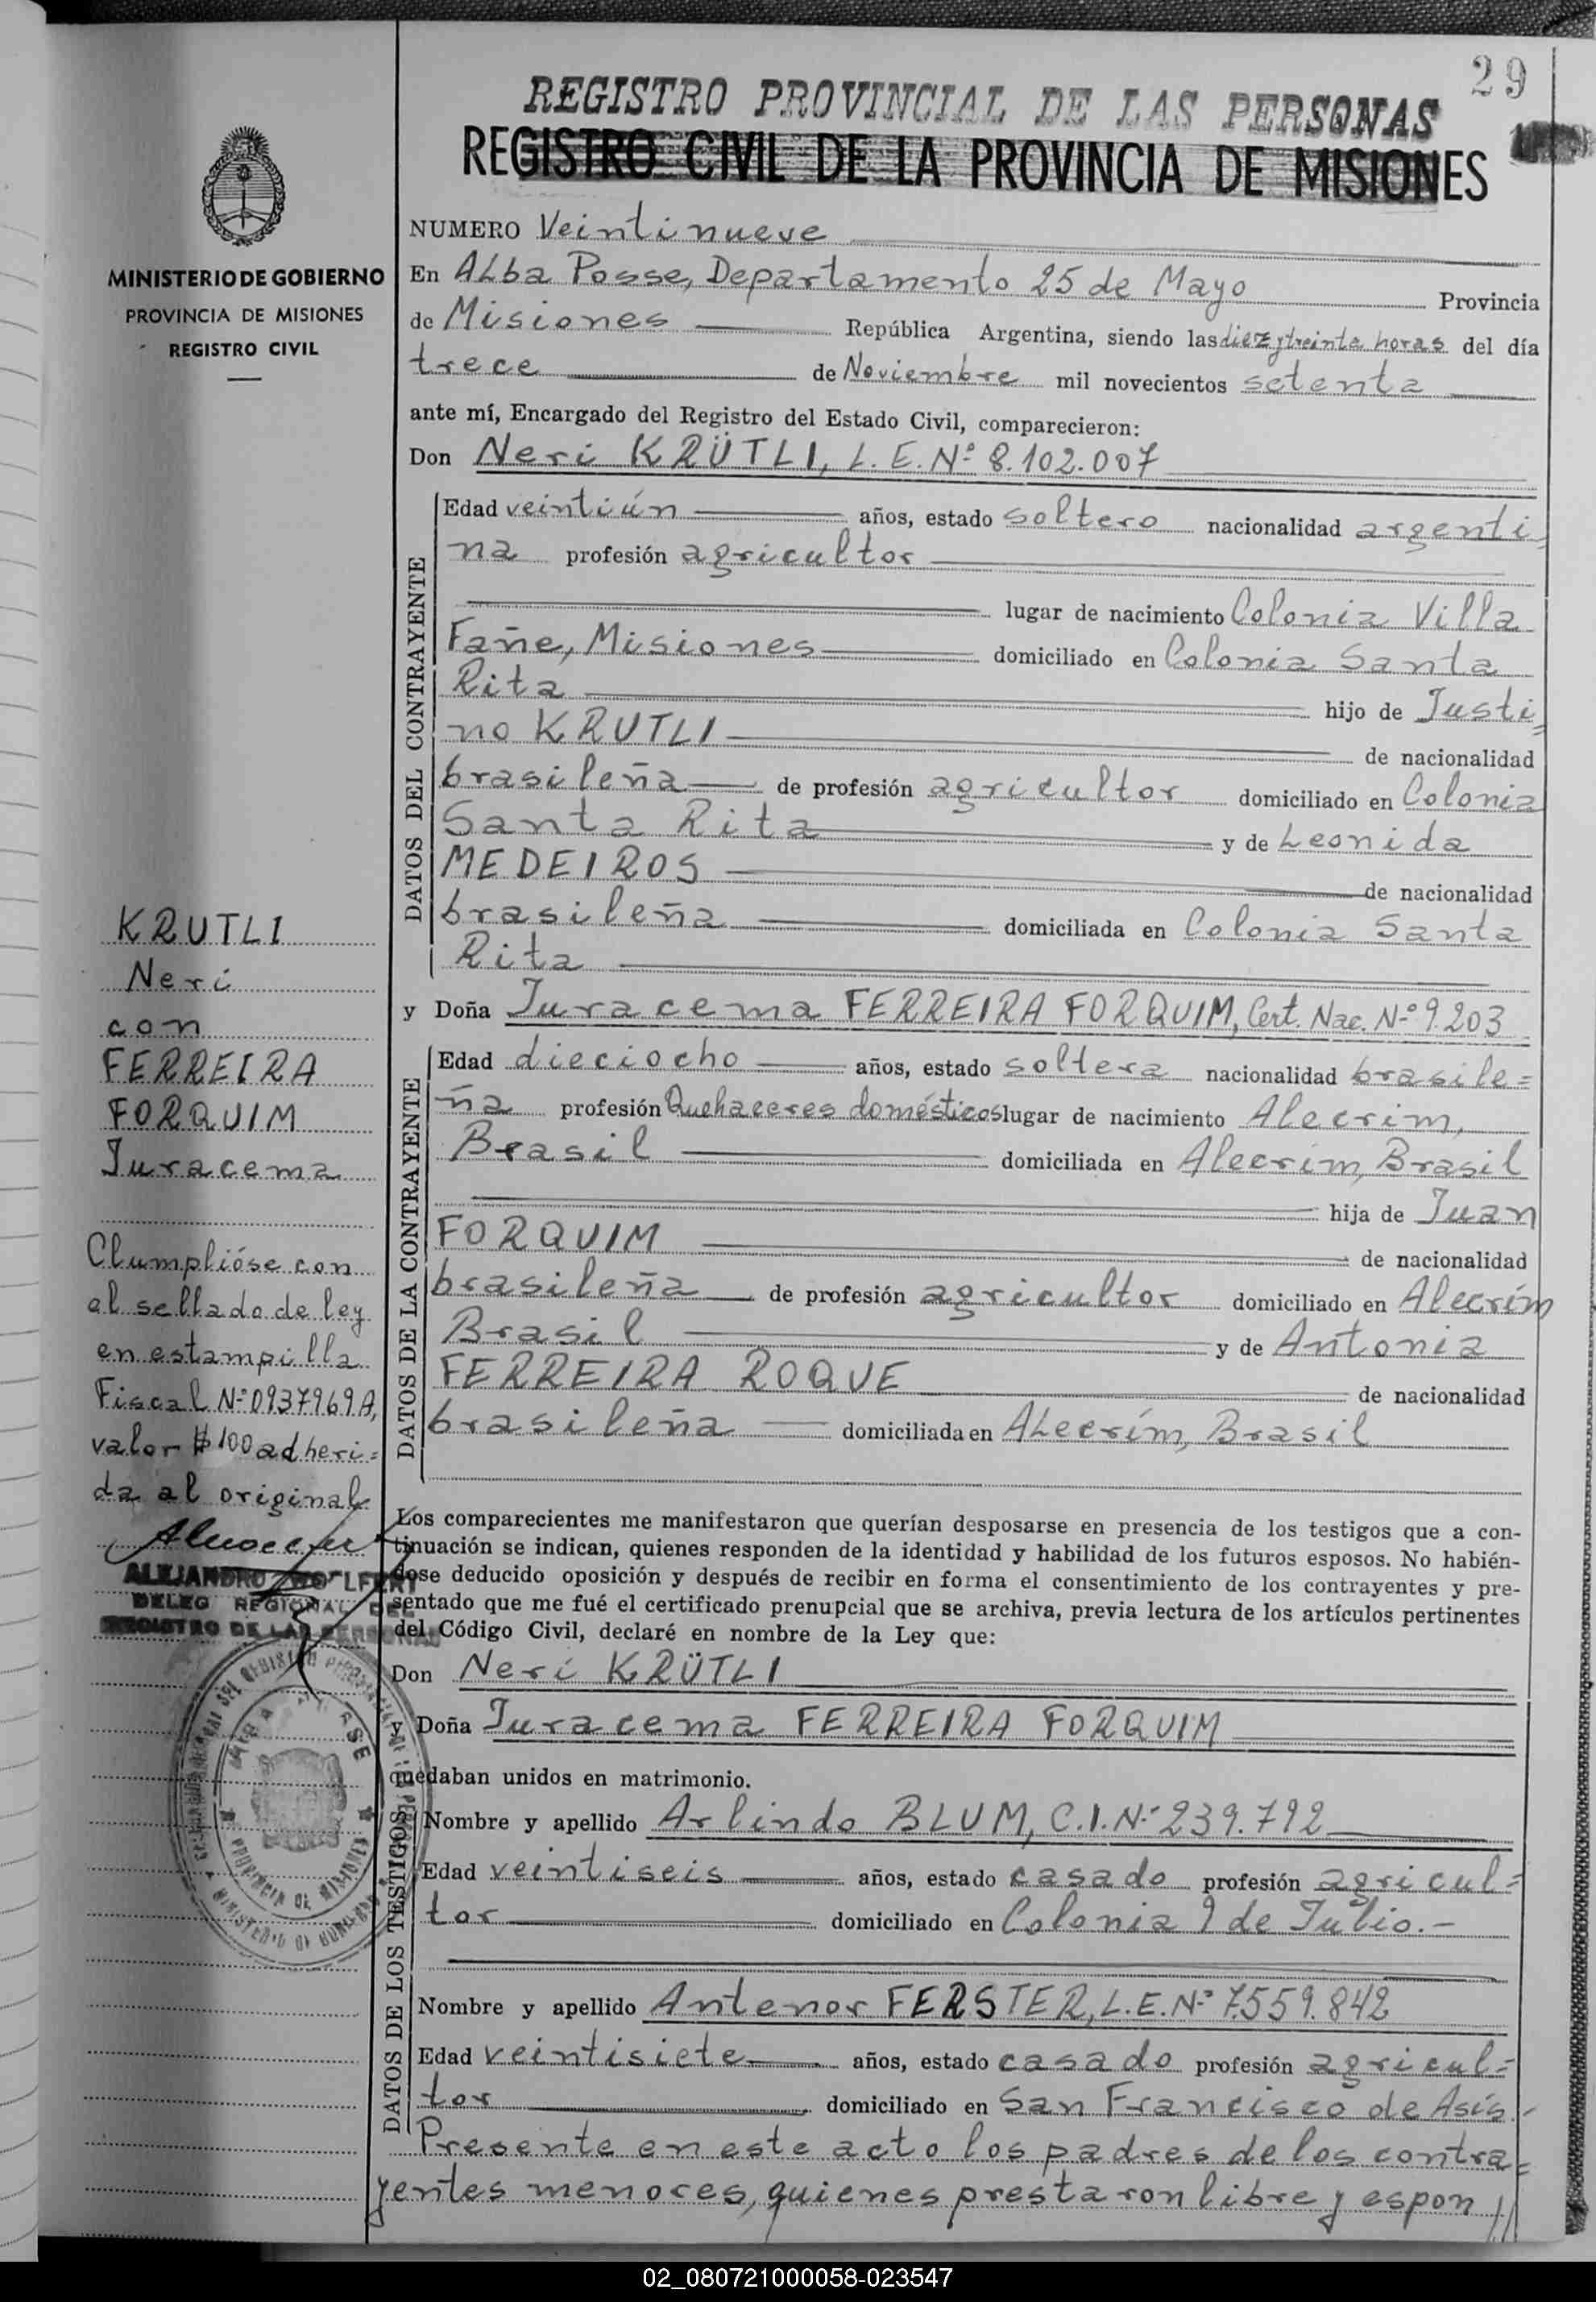 29
REGISTRO PROVINCIAL DE LAS PERSONAS
REGISTRO CIVIL DE LA PROVINCIA DE MISIONES
MINISTERIO DE GOBIERNO
PROVINCIA DE MISIONES
REGISTRO CIVIL
NUMERO Veintinueve
En Alba Posse, Departamento 25 de Mayo Provincia
de Misiones República Argentina, siendo las diez y treinta horas del día
trece de Noviembre mil novecientos setenta
ante mí, Encargado del Registro del Estado Civil, comparecieron:
Don Neri KRÜTLI, L.E.Nº 8.102.007
DATOS DEL CONTRAYENTE
Edad veintiún años, estado soltero nacionalidad argenti=
na profesión agricultor
lugar de nacimiento Colonia Villa
Fañe, Misiones domiciliado en Colonia Santa
Rita hijo de Justi=
no KRUTLI de nacionalidad
brasileña de profesión agricultor domiciliado en Colonia
Santa Rita y de Leonida
MEDEIROS de nacionalidad
brasileña domiciliada en Colonia Santa
Rita
y Doña Juracema FERREIRA FORQUIM, Cert. Nac. Nº 9.203
DATOS DE LA CONTRAYENTE
Edad dieciocho años, estado soltera nacionalidad brasile=
ña profesión Quehaceres domésticos lugar de nacimiento Alecrim,
Brasil domiciliada en Alecrím, Brasil
hija de Juan
FORQUIM de nacionalidad
brasileña de profesión agricultor domiciliado en Alecrím
Brasil y de Antonia
FERREIRA ROQUE de nacionalidad
brasileña domiciliada en Alecrím, Brasil
Los comparecientes me manifestaron que querían desposarse en presencia de los testigos que a con-
tinuación se indican, quienes responden de la identidad y habilidad de los futuros esposos. No habién-
dose deducido oposición y después de recibir en forma el consentimiento de los contrayentes y pre-
sentado que me fué el certificado prenupcial que se archiva, previa lectura de los artículos pertinentes
del Código Civil, declaré en nombre de la Ley que:
Don Neri KRÜTLI
y Doña Juracema FERREIRA FORQUIM
quedaban unidos en matrimonio.
DATOS DE LOS TESTIGOS
Nombre y apellido Arlindo BLUM, C.I.Nº 239.792
Edad veintiseis años, estado casado profesión agricul=
tor domiciliado en Colonia 9 de Julio.-
Nombre y apellido Antenor FERSTER, L.E.Nº 7.559.842
Edad veintisiete años, estado casado profesión agricul=
tor domiciliado en San Francisco de Asís.-
Presente en este acto los padres de los contra=
yentes menores, quienes prestaron libre y espon//
KRUTLI
Neri
con
FERREIRA
FORQUIM
Juracema
Clumplióse con
el sellado de ley
en estampilla
Fiscal Nº 0937969A,
valor $100 adheri=
da al original
ALEJANDRO
DELEG REGIONAL DEL
REGISTRO DE LAS PERSONAS
02_080721000058-023547